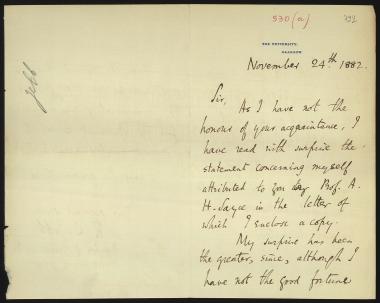 530 (a)
392
Jebb
THE UNIVERSITY,
GLASGOW.
November 24th. 1882.
Sir,
As I have not the
honour of your acquaintance, I
have read with surprise the
statement concerning myself
attributed to you by Prof. A.
H. Sayce in the letter of
which I enclose a copy.
My surprise has been
the greater, since, although I
have not the good fortune